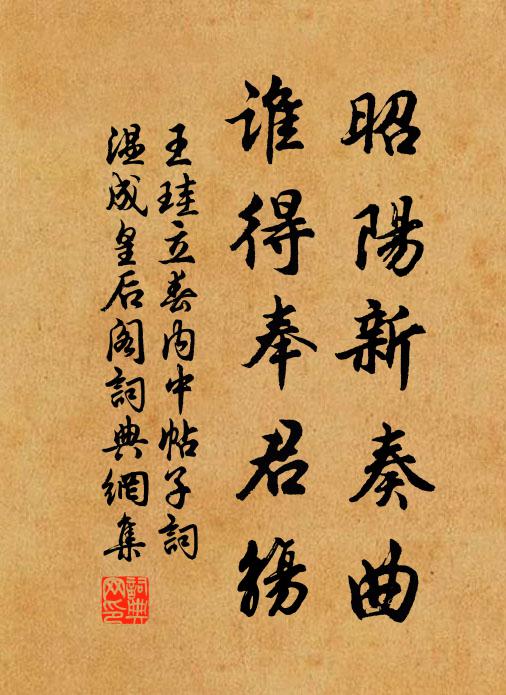 昭陽新奏曲
誰得奉君觴
王珪立春內中帖子詞
溫成皇后閣詞典網集
詞典網印